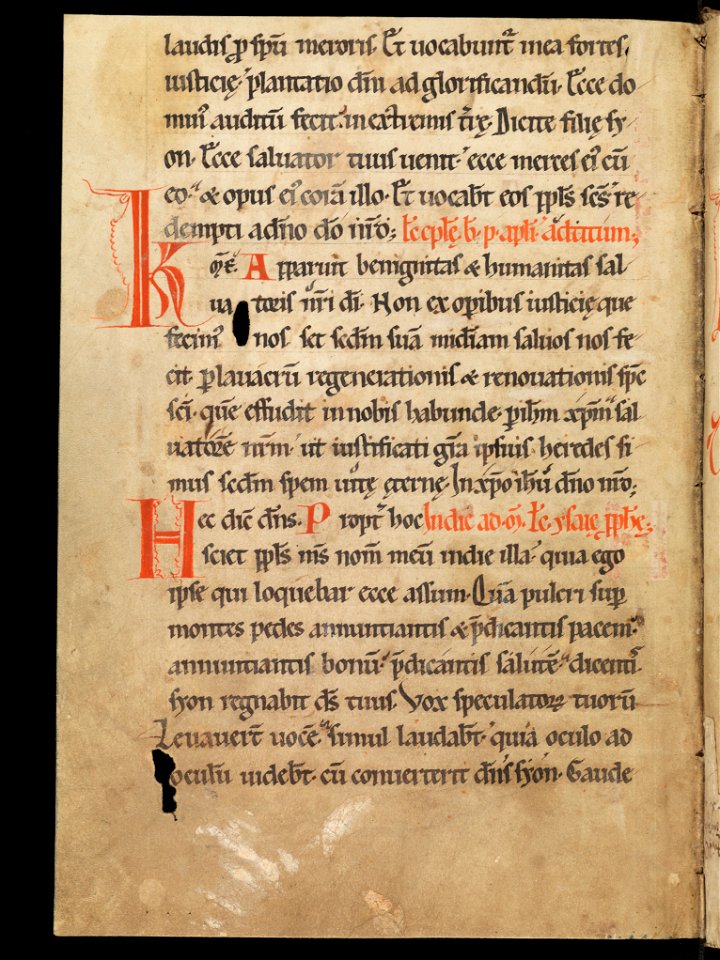 laudis ꝓ spū meroris. Et uocabunt᷑ in ea fortes.
iusticię. plantatio dn̄i ad glorificandū. Ecce do
minꝰ auditū fecit in extremis t̄rę. Dicite filię sy
on. Ecce saluator tuus uenit. ecce merces eiꝰ cū
eo. & opus eiꝰ corā illo. Et uocab̄t eos ppl̄s sc̄s re
dempti a dn̄o dō nr̄o; Lc̄ ep̄lę b. p. apl̄i ad titum;
Kme. Apparuit benignitas & humanitas sal
uatoris nr̄i dī. Non ex operibus iusticię que
fecimꝰ nos set scdm̄ suā mīdiam saluos nos fe
cit. ꝑ lauacrū regenerationis & renouationis sp̄c
sc̄i. quē effudit in nobis habunde. ꝑ ih̄m xp̄m sal
uatorē nr̄m. ut iustificati gr̄a ipsius. heredes si
mus scdm̄ spem uitę ęternę. In xp̄o ih̄u dn̄o nr̄o;
Hec dic̄ dn̄s. Propt̄ hoc In die ad .m̄. Lc̄ ysaię ꝓph̄ę;
sciet ppl̄s ms̄ nom̄ meū in die illa. quia ego
ipse qui loquebar ecce assum. Quā pulcri suꝑ
montes pedes annuntiantis & p̄dicantis pacem.
annuntiantis bonū. p̄dicantis salutē. dicentiꝰ
syon regnabit ds̄ tuus. Vox speculatoꝝ tuorū
Leuauer̄t uocē. simul laudab̄t. quia oculo ad
oculū uideb̄t. cū conuerterit dn̄s syon. Gaude